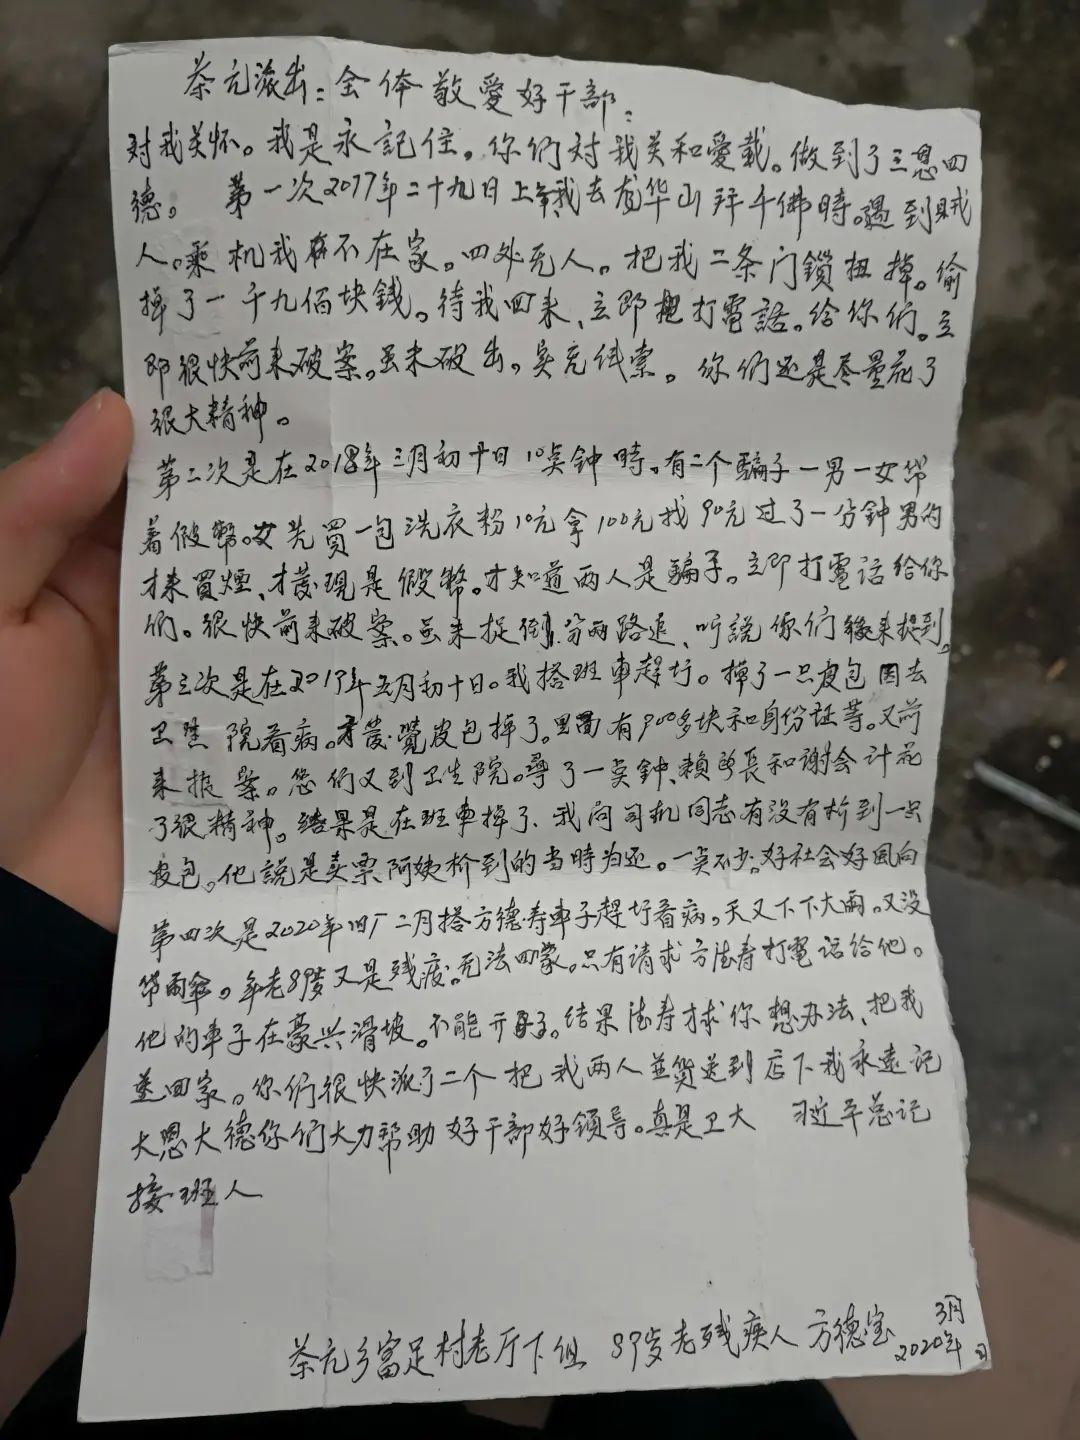 茶元派出：全体敬愛好干部：
对我关怀。我是永記住。你们对我关和愛戴。做到了三恩四
德。 第一次2017年二十九日上午我去龙华山拜千佛時。遇到贼
人。乘机我不在家。四处无人。把我二条门鎖扭掉。偷
掉了一千九佰块錢。待我回来、立即打電話。给你们。立
即很快前来破案。虽未破出。实无线索。你们还是尽量花了
很大精神。
第二次是在2018年三月初十日10点钟時。有二个騙子一男一女带
着假幣。女先買一包洗衣粉10元拿100元找90元过了一分钟男的
才来買煙、才發現是假幣。才知道两人是騙子。立即打電话给你
们。很快前来破案。虽未捉倒、分两路追、听説你们後来捉到。
第三次是在2019年五月初十日。我搭班車趕圩。掉了一只皮包因去
卫生院看病。才發覺皮包掉了。里面有900多块和身份证等。又前
来报案。您们又到卫生院。尋了一点钟、賴所長和谢会计花
了很精神。结果是在班車掉了、我问司机同志有没有捡到一只
皮包。他說是卖票阿姨捡到的当時归还。一点不少。好社会好風向
第四次是2020年旧厂二月搭方德寿車子趕圩看病。天又下下大雨。又没
带雨傘。年老89岁又是残疾。无法回家。只有请求方德寿打電话给他。
他的車子在豪兴滑坡。不能开。结果德寿才求你想办法、把我
送回家。你们很快派了二个把我两人並貨送到店下我永遠记
大恩大德你们大力帮助好干部好领导。真是卫大 习近平总记
接班人
茶元乡富足村老厅下组 89岁老残疾人方德宝 2020年3月 日